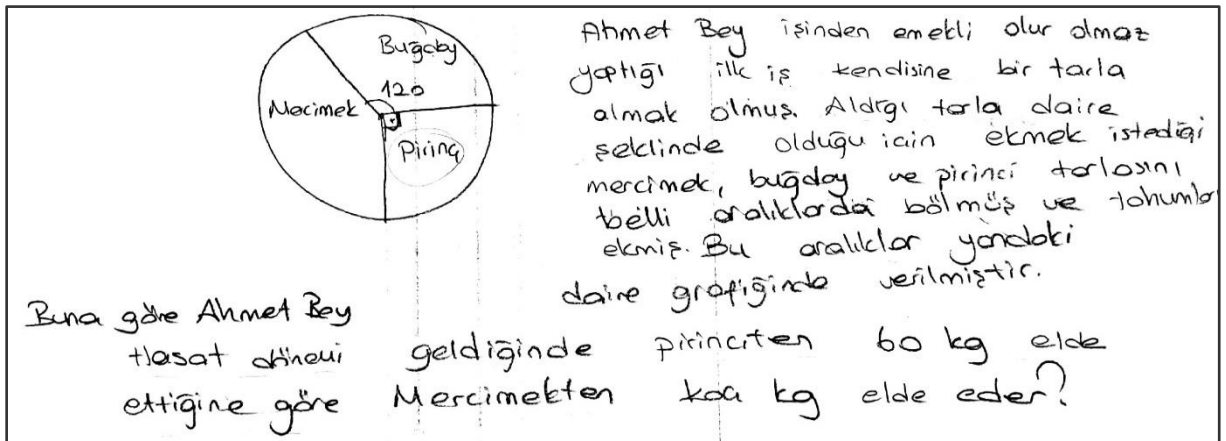 Buğday
120
Mecimek
Pirinç
Ahmet Bey işinden emekli olur olmaz
yaptığı ilk iş kendisine bir tarla
almak olmuş. Aldığı tarla daire
şeklinde olduğu için ekmek istediği
mercimek, buğday ve pirinci tarlasını
belli aralıklarda bölmüş ve tohumlar
ekmiş. Bu aralıklar yandaki
daire grafiğinde verilmiştir.
Buna göre Ahmet Bey
Hasat dönemi geldiğinde pirinciten 60 kg elde
ettiğine göre Mercimekten kaç kg elde eder?